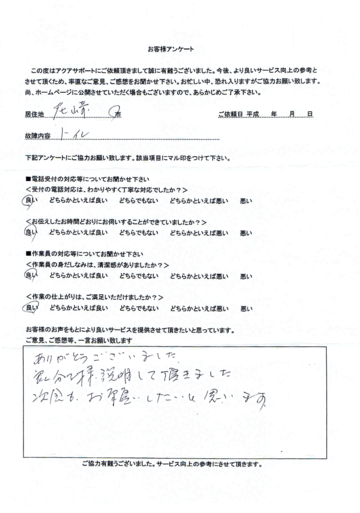 お客様アンケート
この度はアクアサポートにご依頼頂きまして誠に有難うございました。今後、より良いサービス向上の参考と
させて頂くため、率直なご意見、ご感想をお聞かせ下さい。お忙しい中、恐れ入りますがご協力お願い致します。
尚、ホームページに公開させていただく場合もございますので、あらかじめご了承下さい。
居住地 尼崎 様 ご依頼日 平成 年 月 日
故障内容 トイレ
下記アンケートにご協力お願い致します。該当項目にマル印をつけて下さい。
■電話受付の対応等についてお聞かせ下さい
＜受付の電話対応は、わかりやすく丁寧な対応でしたか？＞
良い どちらかといえば良い どちらでもない どちらかといえば悪い 悪い
＜お伝えしたお時間どおりにお伺いすることができていましたか？＞
良い どちらかといえば良い どちらでもない どちらかといえば悪い 悪い
■作業員の対応等についてお聞かせ下さい
＜作業員の身だしなみは、清潔感がありましたか？＞
良い どちらかといえば良い どちらでもない どちらかといえば悪い 悪い
＜作業の仕上がりは、ご満足いただけましたか？＞
良い どちらかといえば良い どちらでもない どちらかといえば悪い 悪い
お客様のお声をもとにより良いサービスを提供させて頂きたいと思っています。
ご意見、ご感想等、一言お願い致します
ありがとうございました
説明して頂きました
次回も、お願いしたいと思います
ご協力有難うございました。サービス向上の参考にさせて頂きます。